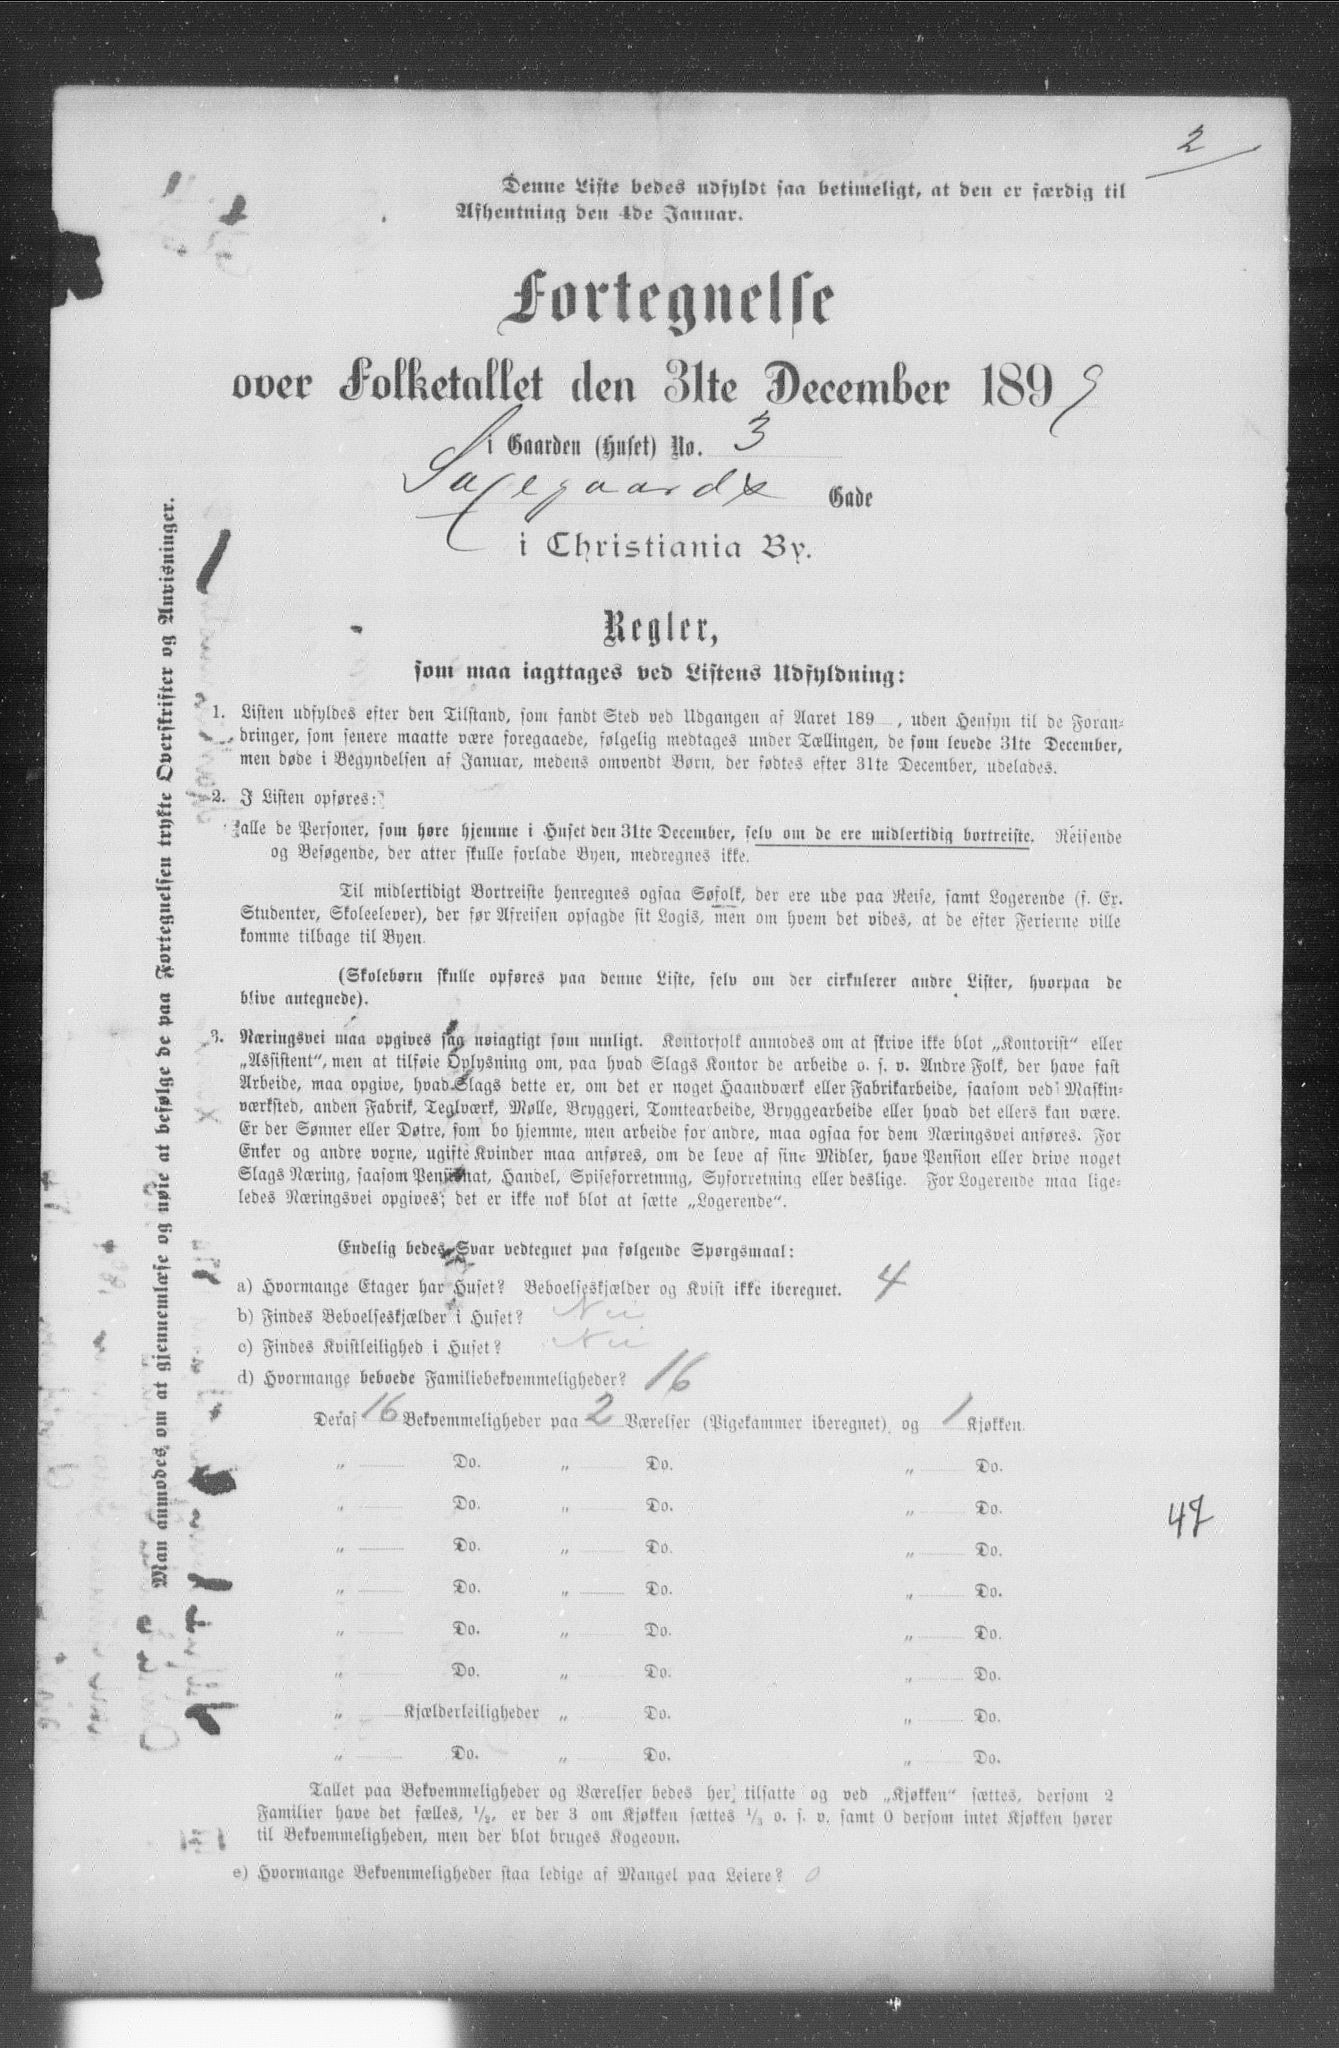 2
Denne Liste bedes udfyldt saa betimeligt, at den er færdig til
Afhentning den 4de Januar.
Fortegnelse
over Folketallet den 31te December 1899
i Gaarden (Huset) No. 3
Saxegaards Gade
i Christiania By.
Man anmodes om at gjennemlæse og nøie at befølge de paa Fortegnelsen trykte Overskrifter og Anvisninger.
Regler,
som maa iagttages ved Listens Udfyldning:
1. Listen udfyldes efter den Tilstand, som fandt Sted ved Udgangen af Aaret 189 , uden Hensyn til de Foran-
dringer, som senere maatte være foregaaede, følgelig medtages under Tællingen, de som levede 31te December,
men døde i Begyndelsen af Januar, medens omvendt Børn, der fødtes efter 31te December, udelades.
2. I Listen opføres:
alle de Personer, som høre hjemme i Huset den 31te December, selv om de ere midlertidig bortreiste. Reisende
og Besøgende, der atter skulle forlade Byen, medregnes ikke.
Til midlertidigt Bortreiste henregnes ogsaa Søfolk, der ere ude paa Reise, samt Logerende (f. Ex.
Studenter, Skoleelever), der før Afreisen opsagde sit Logis, men om hvem det vides, at de efter Ferierne ville
komme tilbage til Byen.
(Skolebørn skulle opføres paa denne Liste, selv om der cirkulerer andre Lister, hvorpaa de
blive antegnede).
3. Næringsvei maa opgives saa nøiagtigt som muligt. Kontorfolk anmodes om at skrive ikke blot „Kontorist“ eller
„Assistent“, men at tilføie Oplysning om, paa hvad Slags Kontor de arbeide o. s. v. Andre Folk, der have fast
Arbeide, maa opgive, hvad Slags dette er, om det er noget Haandværk eller Fabrikarbeide, saasom ved Maskin-
værksted, anden Fabrik, Teglværk, Mølle, Bryggeri, Tomtearbeide, Bryggearbeide eller hvad det ellers kan være.
Er der Sønner eller Døtre, som bo hjemme, men arbeide for andre, maa ogsaa for dem Næringsvei anføres. For
Enker og andre voxne, ugifte Kvinder maa anføres, om de leve af sine Midler, have Pension eller drive noget
Slags Næring, saasom Pensionat, Handel, Spiseforretning, Syforretning eller deslige. For Logerende maa lige-
ledes Næringsvei opgives; det er ikke nok blot at sætte „Logerende“.
Endelig bedes Svar vedtegnet paa følgende Spørgsmaal:
a) Hvormange Etager har Huset? Beboelseskjælder og Kvist ikke iberegnet. 4
b) Findes Beboelseskjælder i Huset? Nei
c) Findes Kvistleilighed i Huset? Nei
d) Hvormange beboede Familiebekvemmeligheder? 16
Deraf 16 Bekvemmeligheder paa 2 Værelser (Pigekammer iberegnet), og 1 Kjøkken.
„ Do. „ Do. „ Do.
„ Do. „ Do. „ Do.
47
„ Do. „ Do. „ Do.
„ Do. „ Do. „ Do.
„ Do. „ Do. „ Do.
„ Do. „ Do. „ Do.
„ Kjælderleiligheder „ Do. „ Do.
„ Do. „ Do. „ Do.
Tallet paa Bekvemmeligheder og Værelser bedes her tilsatte og ved „Kjøkken“ sættes, dersom 2
Familier have det fælles, 1/2, er der 3 om Kjøkken sættes 1/3 o. s. v. samt 0 dersom intet Kjøkken hører
til Bekvemmeligheden, men der blot bruges Kogeovn.
e) Hvormange Bekvemmeligheder staa ledige af Mangel paa Leiere? 0